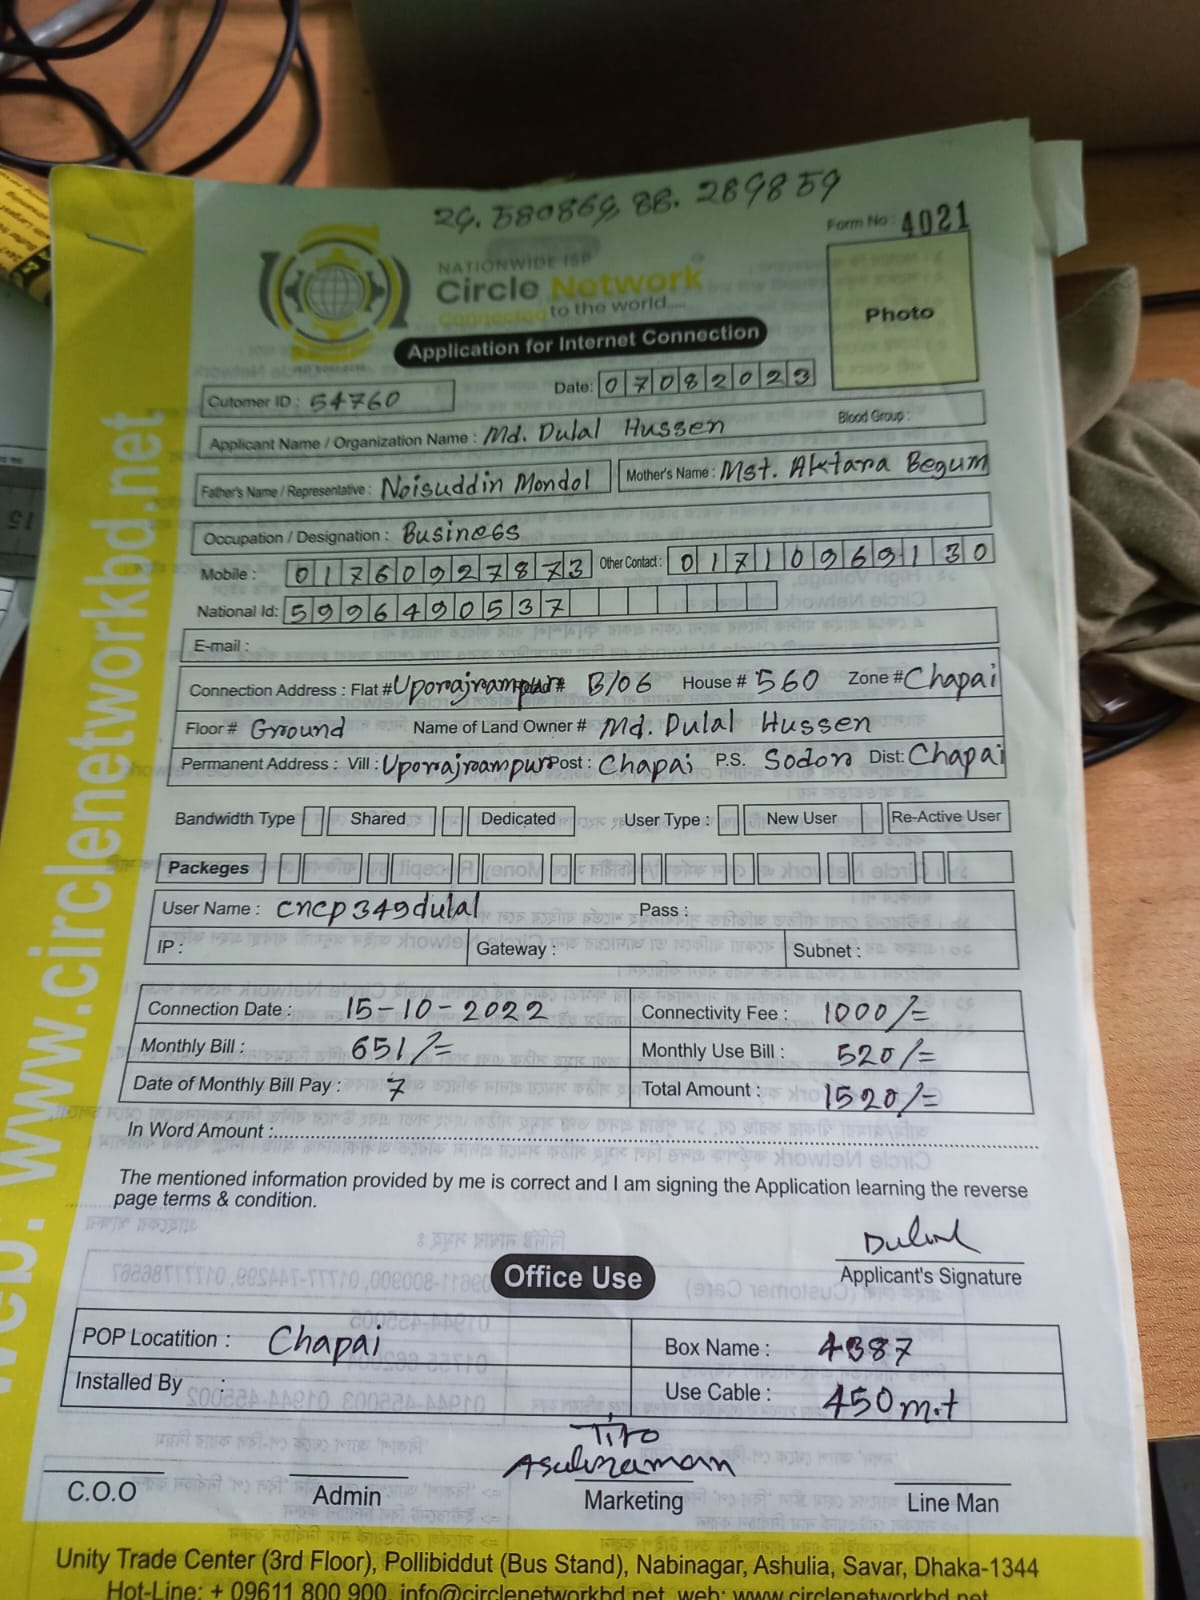 24.580869, 88.289859
Form No : 4021
NATIONWIDE ISP
Circle Network
Connected to the world.....
Photo
Application for Internet Connection
Date: 07082023
Cutomer ID : 54760
Applicant Name / Organization Name : Md. Dulal Hussen Blood Group :
Father's Name / Representative : Noisuddin Mondol Mother's Name : Mst. Aktara Begum
Occupation / Designation : Business
Mobile : 01760927873 Other Contact : 01710969130
National Id: 5996490537
E-mail :
Connection Address : Flat # Uporajrampur Road # B/06 House # 560 Zone # Chapai
Floor # Ground Name of Land Owner # Md. Dulal Hussen
Permanent Address : Vill : Uporajrampur Post : Chapai P.S. Sodor Dist: Chapai
Bandwidth Type Shared Dedicated User Type : New User Re-Active User
Packeges
User Name : cncp349dulal Pass :
IP : Gateway : Subnet :
Connection Date : 15-10-2022 Connectivity Fee : 1000/=
Monthly Bill : 651/= Monthly Use Bill : 520/=
Date of Monthly Bill Pay : 7 Total Amount : 1520/=
In Word Amount :
The mentioned information provided by me is correct and I am signing the Application learning the reverse
page terms & condition.
Dulal
Applicant's Signature
Office Use
POP Locatition : Chapai Box Name : 4387
Installed By : Use Cable : 450 m.t
Tito
Asaduzzaman
C.O.O Admin Marketing Line Man
Unity Trade Center (3rd Floor), Pollibiddut (Bus Stand), Nabinagar, Ashulia, Savar, Dhaka-1344
Hot-Line: + 09611 800 900, info@circlenetworkbd.net, web: www.circlenetworkbd.net
web: www.circlenetworkbd.net